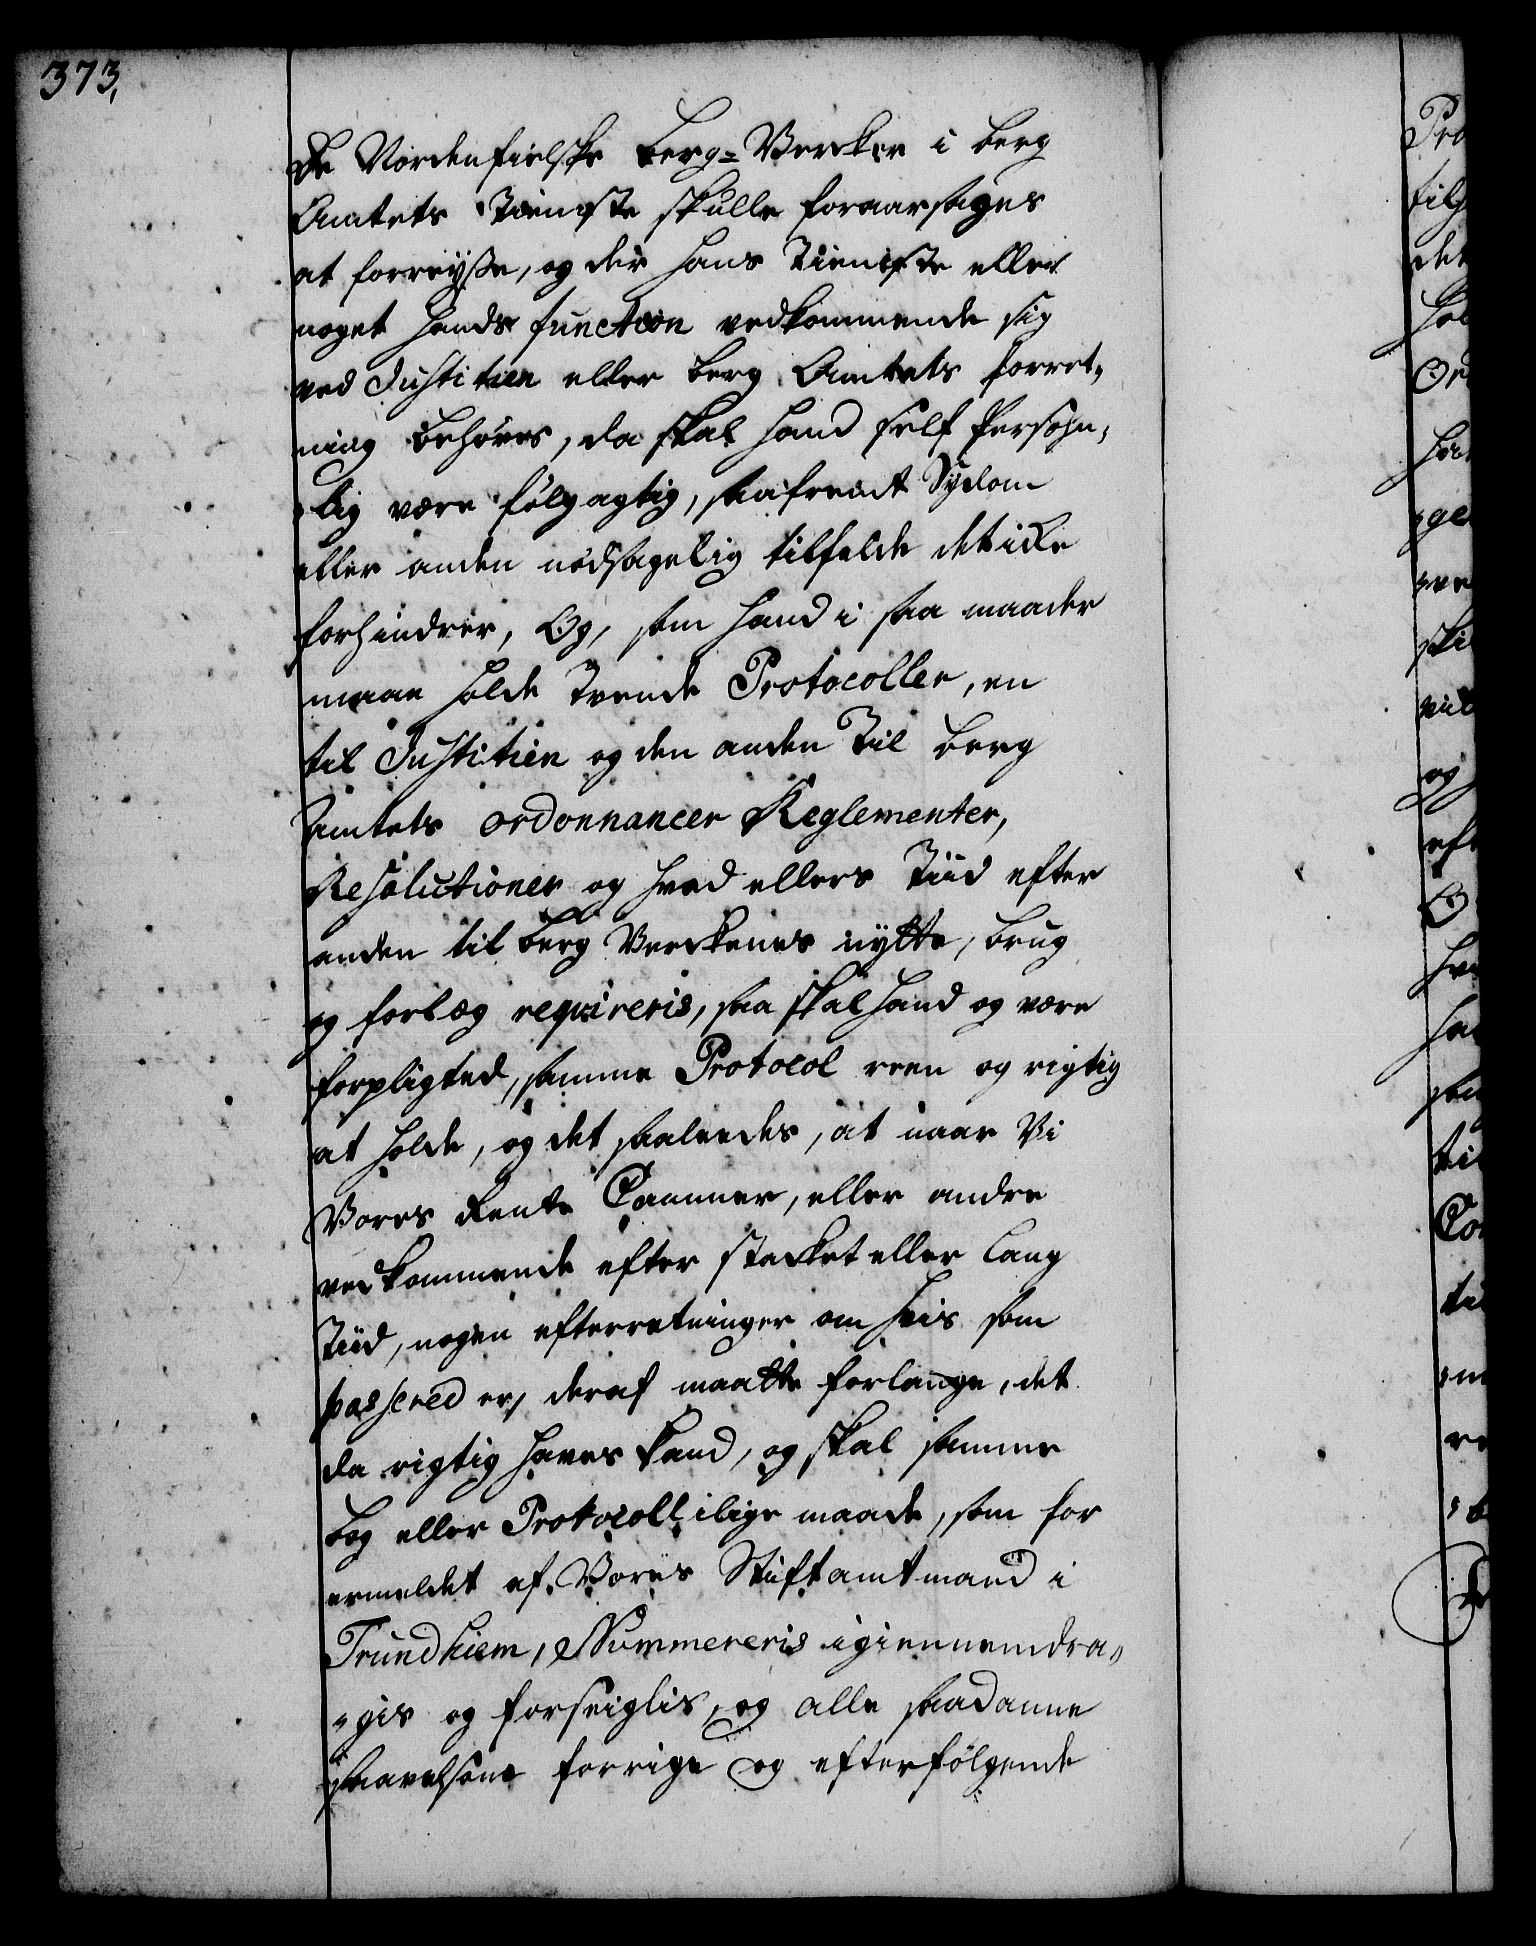 373,
De Nordenfielske Berg=Vercker i Berg
Amtets Tieniste skulle foraarsages
at forreyse, og der hans Tieniste eller
noget hands function vedkommende sig
ved Justitien eller Berg Amtets forret„
ning behøves, da skal hand self Persohn„
„lig være følgagtig, saafremt Sygdom
eller anden nødsagelig tilfelde det icke
forhindrer, Og, som hand i saa maader
maae holde tvende Protocoller, en
til Justitien og den anden Til Berg
Amtets ordonnancer Reglementer,
Resolutioner og hvad ellers Tiid efter
anden til Berg Verckenes nytte, brug
og forlæg requireris, saa skal hand og være
forpligted, samme Protocol reen og rigtig
at holde, og det saaleedes, at naar Vi
Vores Rente Cammer, eller andre
vedkommende efter stacket eller lang
Tiid, nogen efterretninger om hvis som
passered er, deraf maatte forlange, det
da rigtig haves kand, og skal samme
bog eller Protocoll ilige maade, som for
ermeldet af Vores Stiftamtmand i
Trundhiem, Nummereris igiennemdra„
„gis og forseiglis, og alle saadanne
saavelsom forrige og efterfølgende
Pro
det
Ord
„ge
og
eft
til